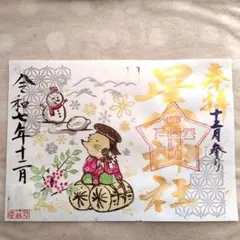 奉拝
十二月参り
星神社
令和七年十二月